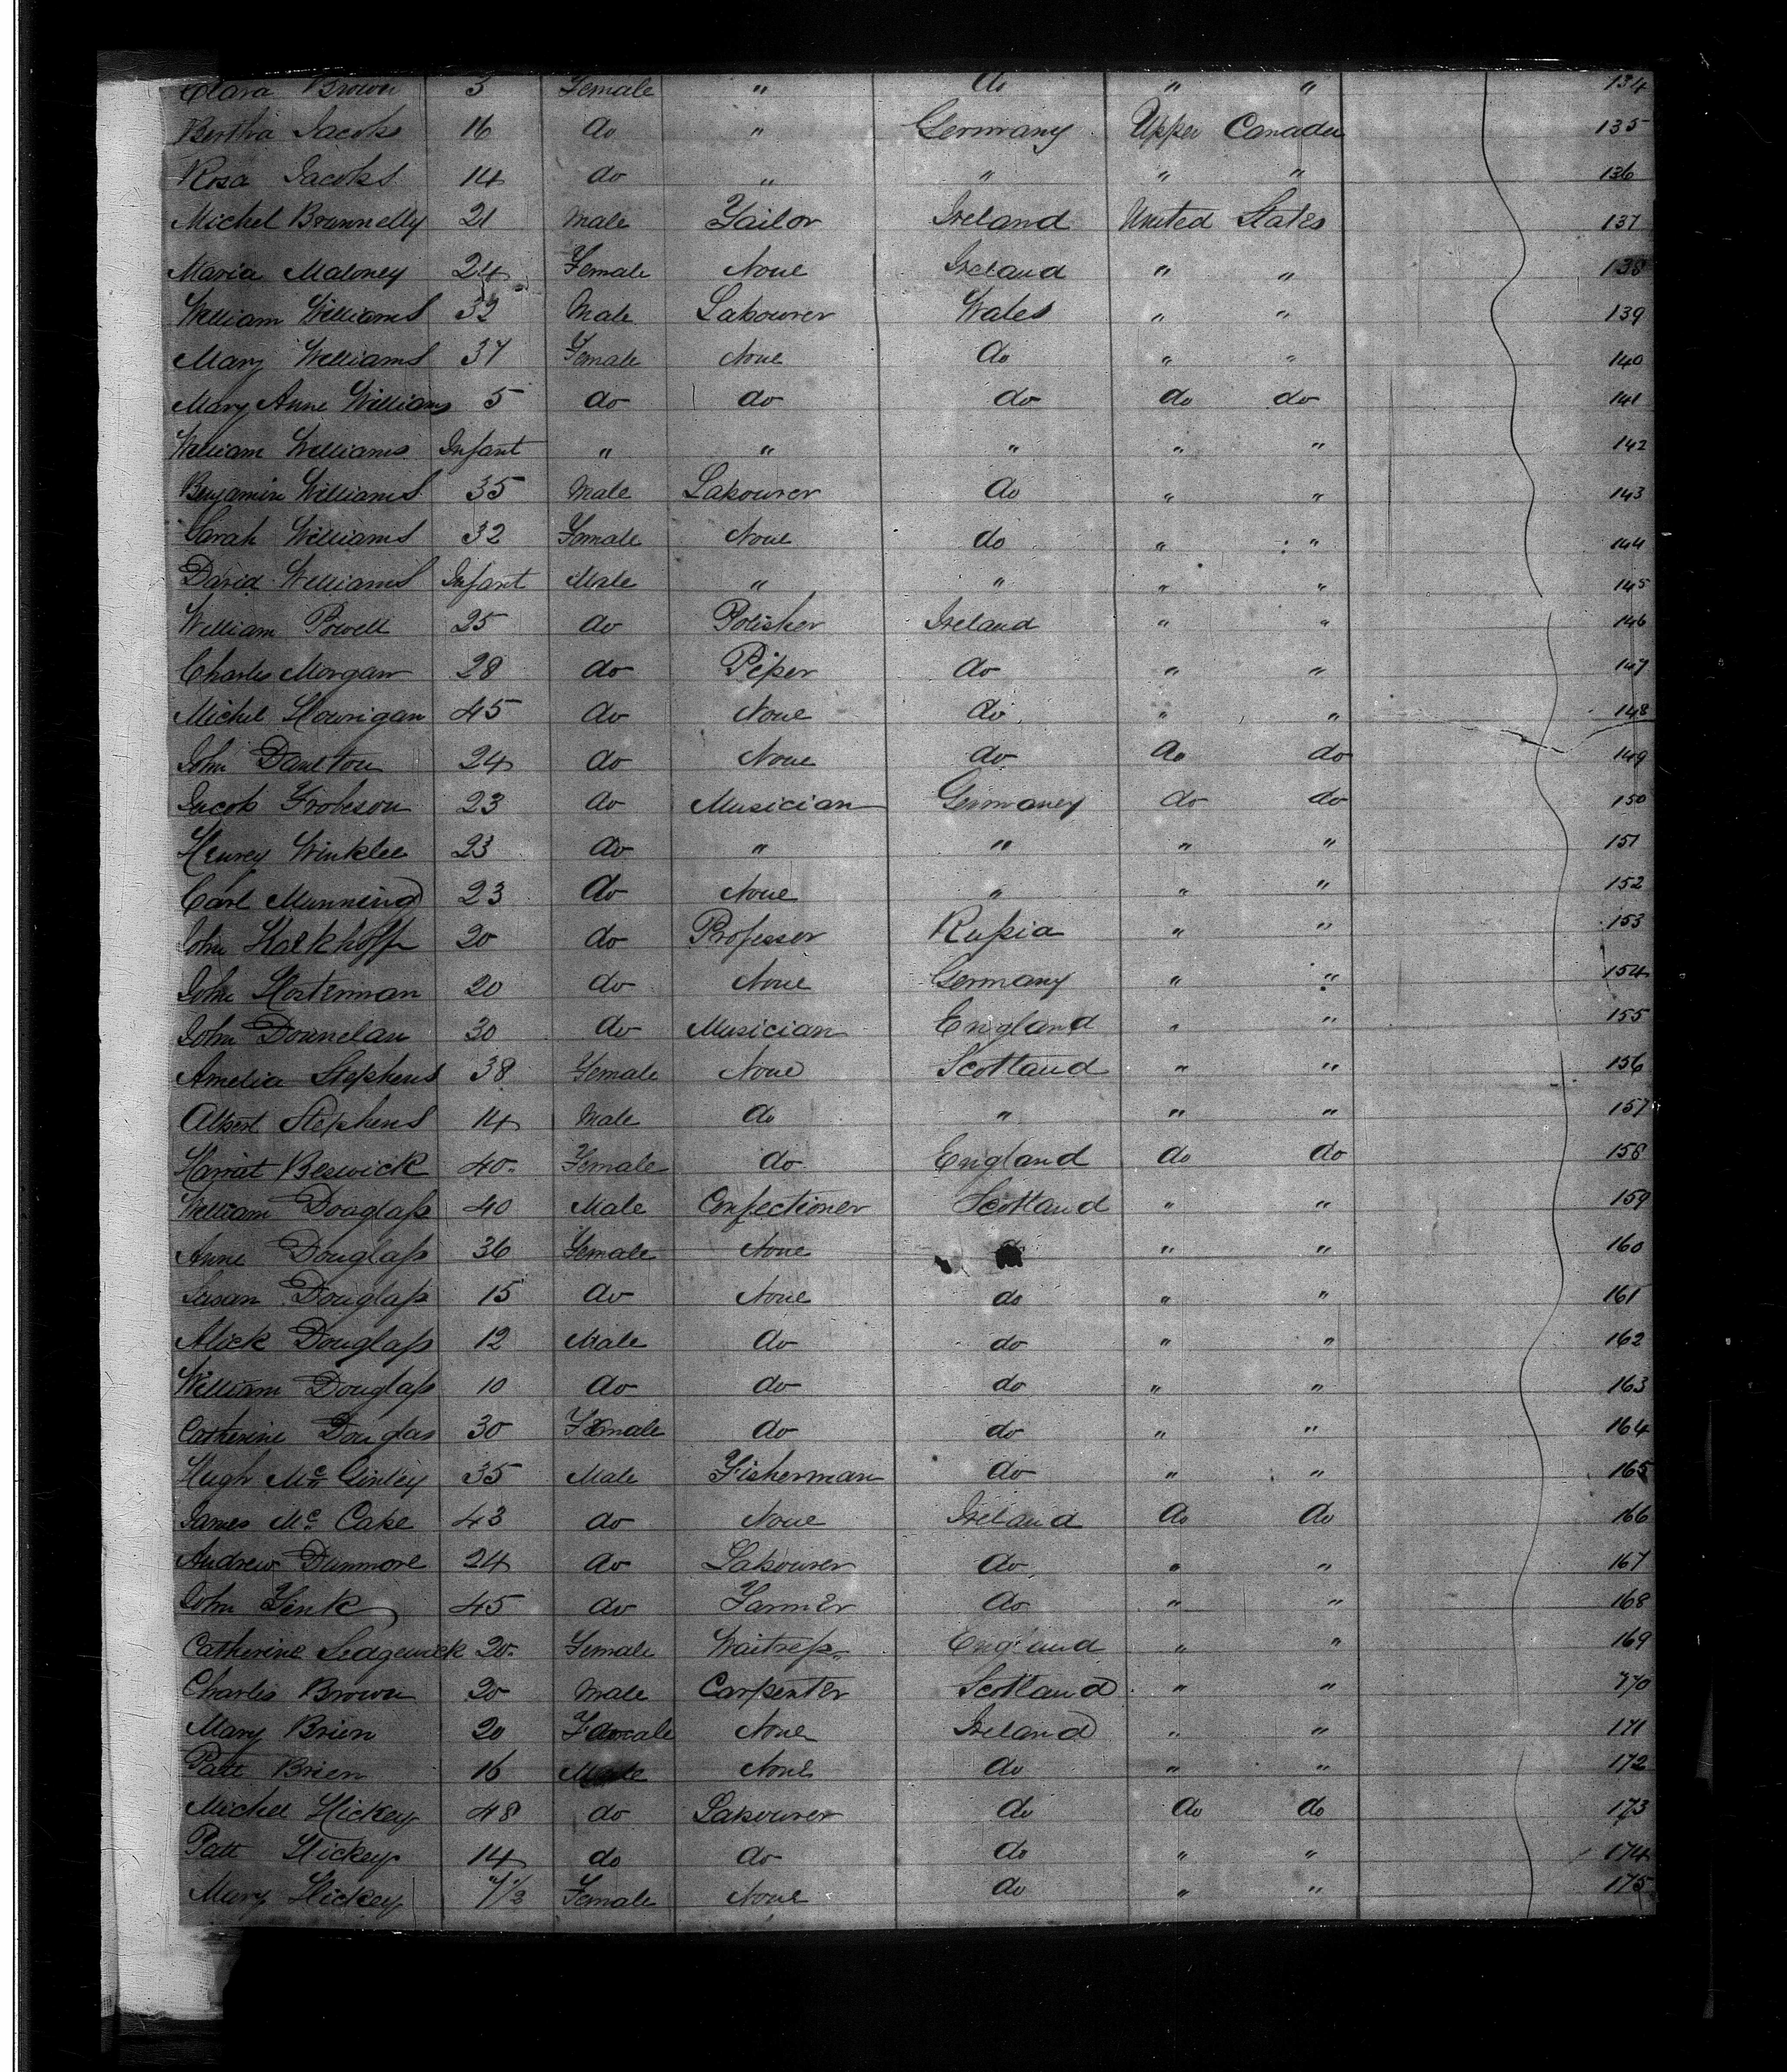 Clara Brown 3 Female " do " " 134
Bertha Jacobs 16 do " Germany Upper Canada 135
Rosa Jacobs 14 do " " " " 136
Michel Brannelly 21 Male Tailor Ireland United States 137
Maria Maloney 24 Female None Ireland " " 138
William Williams 32 Male Labourer Wales " " 139
Mary Williams 37 Female None do " " 140
Mary Anne Williams 5 do do do do do 141
William Williams Infant " " " " " 142
Benjamin Williams 35 Male Labourer do " " 143
Sarah Williams 32 Female None do " " 144
David Williams Infant Male " " " " 145
William Powell 25 do Polisher Ireland " " 146
Charles Morgan 28 do Piper do " " 147
Michel Hourigan 45 do None do " " 148
John Daulton 24 do None do do do 149
Jacob Frobeson 23 do Musician Germaney do do 150
Henrey Winklee 23 do " " " " 151
Carl Munning 23 do None " " " 152
John 20 do Professor Russia " " 153
John Hosterman 20 do None Germany " " 154
John Donnelan 30 do Musician England " " 155
Amelia Stephens 38 Female None Scotland " " 156
Albert Stephens 14 Male do " " " 157
Harriet Beswick 40 Female do England do do 158
William Douglass 40 Male Confectioner Scotland " " 159
Anne Douglass 36 Female None do " " 160
Susan Douglass 15 do None do " " 161
Alick Douglass 12 Male do do " " 162
William Douglass 10 do do do " " 163
Catherine Douglas 30 Female do do " " 164
Hugh Mc Ginley 35 Male Fisherman do " " 165
James Mc Cabe 43 do None Ireland do do 166
Andrew Dunmore 24 do Labourer do " " 167
John Fink 45 do Farmer do " " 168
Catherine Sedgewick 20 Female Waitress England " " 169
Charles Brown 20 Male Carpenter Scotland " " 170
Mary Brien 20 Female None Ireland " " 171
Patt Brien 16 Male None do " " 172
Michel Hickey 48 do Labourer do do do 173
Patt Hickey 14 do do do " " 174
Mary Hickey Female None do " " 175